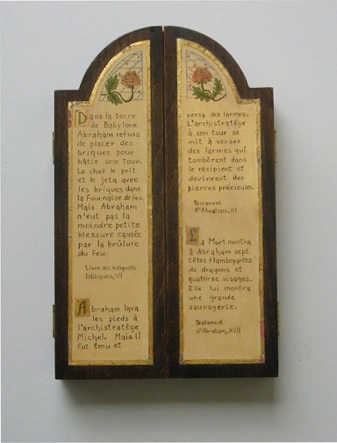 Dans la terre
de Babylone
Abraham refusa
de placer des
briques pour
bâtir une tour.
Le chef le prit
et le jeta avec
les briques dans
la fournaise de feu.
Mais Abraham
n'eut pas la
moindre petite
blessure causée
par la brûlure
du feu.
Livre des Antiquités
bibliques, VI
Abraham lava
les pieds à
l'archistratège
Michel. Mais il
fut ému et
versa des larmes.
L'archistratège
à son tour se
mit à verser
des larmes qui
tombèrent dans
le récipient et
devinrent des
pierres précieuses.
Testament
d'Abraham, III
La Mort montra
à Abraham sept
têtes flamboyantes
de dragons et
quatorze visages.
Elle lui montra
une grande
sauvagerie.
Testament
d'Abraham, XVII